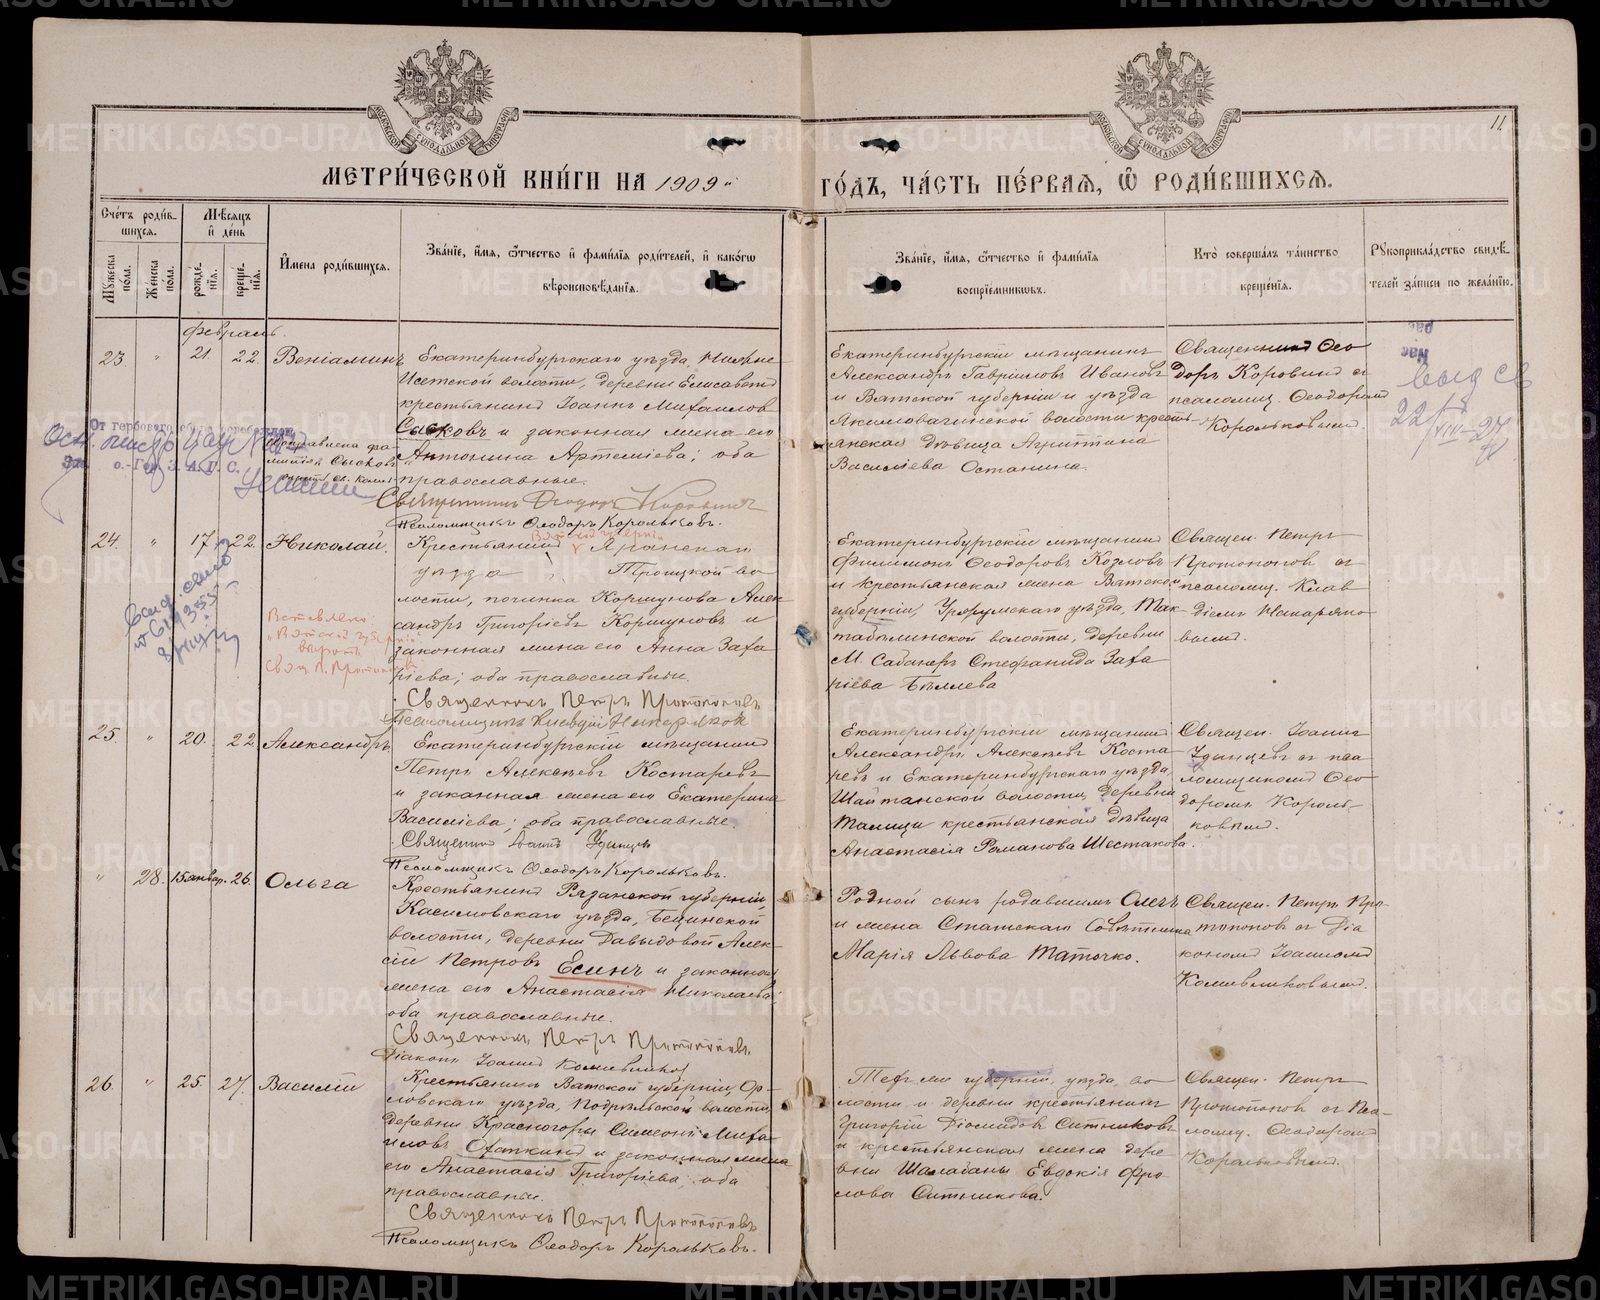 МЕТРИ́ЧЕСКОЙ КНИ́ГИ НА 1909й ГО́ДЪ, ЧА́СТЬ ПЕ́РВАЯ, Ѿ РОДИ́ВШИХСЯ.
11
Счетъ роди́в-
шихся.
Мѣсяцъ
и день
Мужеска
пола.
Женска
пола.
рожде-
нія.
креще-
нія.
Имена роди́вшихся.
Зва́ніе, и́мя, о́тчество и фами́лія роди́телей, и како́гѡ
вѣроисповѣ́данія.
Зва́ніе, и́мя, о́тчество и фами́лія
воспріе́мниковъ.
Кто̀ соверша́лъ та́инство
креще́нія.
Рукоприкла́дство свидѣ́-
телей за́писи по жела́нію.
Февраль.
23 " 21. 22 Веніаминъ
Екатеринбургскаго уѣзда, Нижне
Исетской волости, деревни Елисаветъ
крестьянинъ Іоаннъ Михаиловъ
Сысковъ и законная жена его
Антонина Артеміева; оба
православные.
Псаломщикъ Ѳеодоръ Корольковъ.
Екатеринбургскій мѣщанинъ
Александръ Гавріиловъ Ивановъ
и Вятской губерніи и уѣзда
волости кресть-
янская дѣвица Агриппина
Василіева Останина.
Священникъ Ѳео
доръ Коровинъ съ
псаломщ. Ѳеодоромъ
Корольковымъ.
24. " 17. 22. Николай.
Крестьянинъ Яранскаго
уѣзда Троицкой во
лости, починка Коршунова Алек
сандръ Григоріевъ Коршуновъ и
законная жена его Анна Заха
ріева; оба православные.
Священникъ Петръ Протопоповъ
Вставлено
"Вятской губерніи"
вѣрно
Свящ. П. Протопоповъ
Екатеринбургскій мѣщанинъ
Филимонъ Ѳеодоровъ Козловъ
и крестьянская жена Вятской
губерніи, Уржумскаго уѣзда, Мак
деревни
Стефанида Заха
ріева Бѣляева
Священ. Петръ
Протопоповъ съ
псаломщ. Клав
діемъ
25. " 20. 22. Александръ
Екатеринбургскій мѣщанинъ
Петръ Алексѣевъ Костаревъ
и законная жена его Екатерина
Василіева; оба православные.
Псаломщикъ Ѳеодоръ Корольковъ.
Екатеринбургскій мѣщанинъ
Александръ Алексѣевъ Коста
ревъ и Екатеринбургскаго уѣзда,
Шайтанской волости деревни
Талицы крестьянская дѣвица
Анастасія Романова Шестакова.
Священ. Іоаннъ
Удинцевъ съ пса
ломщикомъ Ѳео
доромъ Король
ковымъ.
" 28. 15 январ. 26. Ольга
Крестьянинъ Рязанской губерніи,
Касимовскаго уѣзда,
волости, деревни Давыдовой Алек
сій Петровъ Есинъ и законная
жена его Анастасія Николаева;
оба православные.
Священникъ Петръ Протопоповъ.
Родной сынъ родившимъ Олегъ
и жена Статскаго Совѣтника
Марія Львова Таточко.
Священ. Петръ Про-
топоповъ съ Діа
кономъ Іоанномъ
26. " 25. 27. Василій
Крестьянинъ Вятской губерніи, Ор-
ловскаго уѣзда, Подрѣльской волости,
деревни Красногоры Симеонъ Миха
иловъ и законная жена
его Анастасія Григоріева; оба
православные.
Священникъ Петръ Протопоповъ
Псаломщикъ Ѳеодоръ Корольковъ.
Тефъ же губерніи, уѣзда, во
лости и деревни крестьянинъ
Григорій Діомидовъ Ситниковъ
и крестьянская жена дере
вни Шалабаны Евдокія Фро
лова Ситникова.
Священ. Петръ
Протопоповъ съ Пса-
ломщ. Ѳеодоромъ
Корольковымъ.